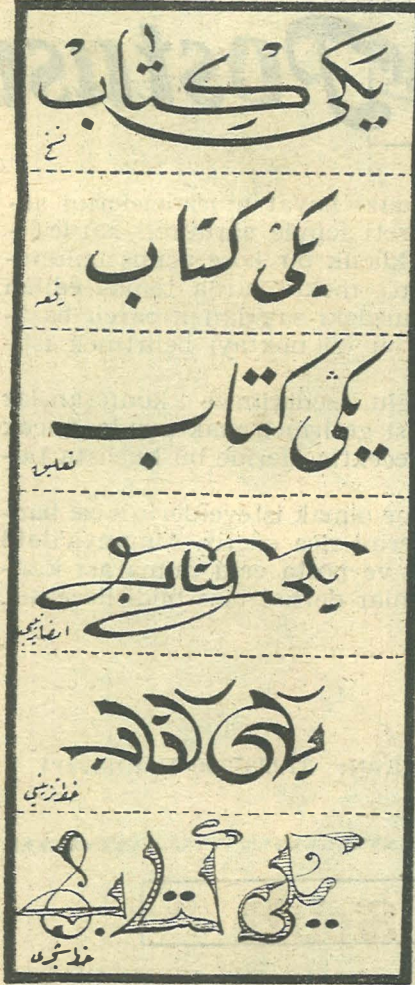 یکی کتاب
نسخ
یکی کتاب
رقعه
یڭی کتاب
تعلیق
یکی کتاب
یکی کتاب
خط تزیینی
یکی کتاب
خط شجری